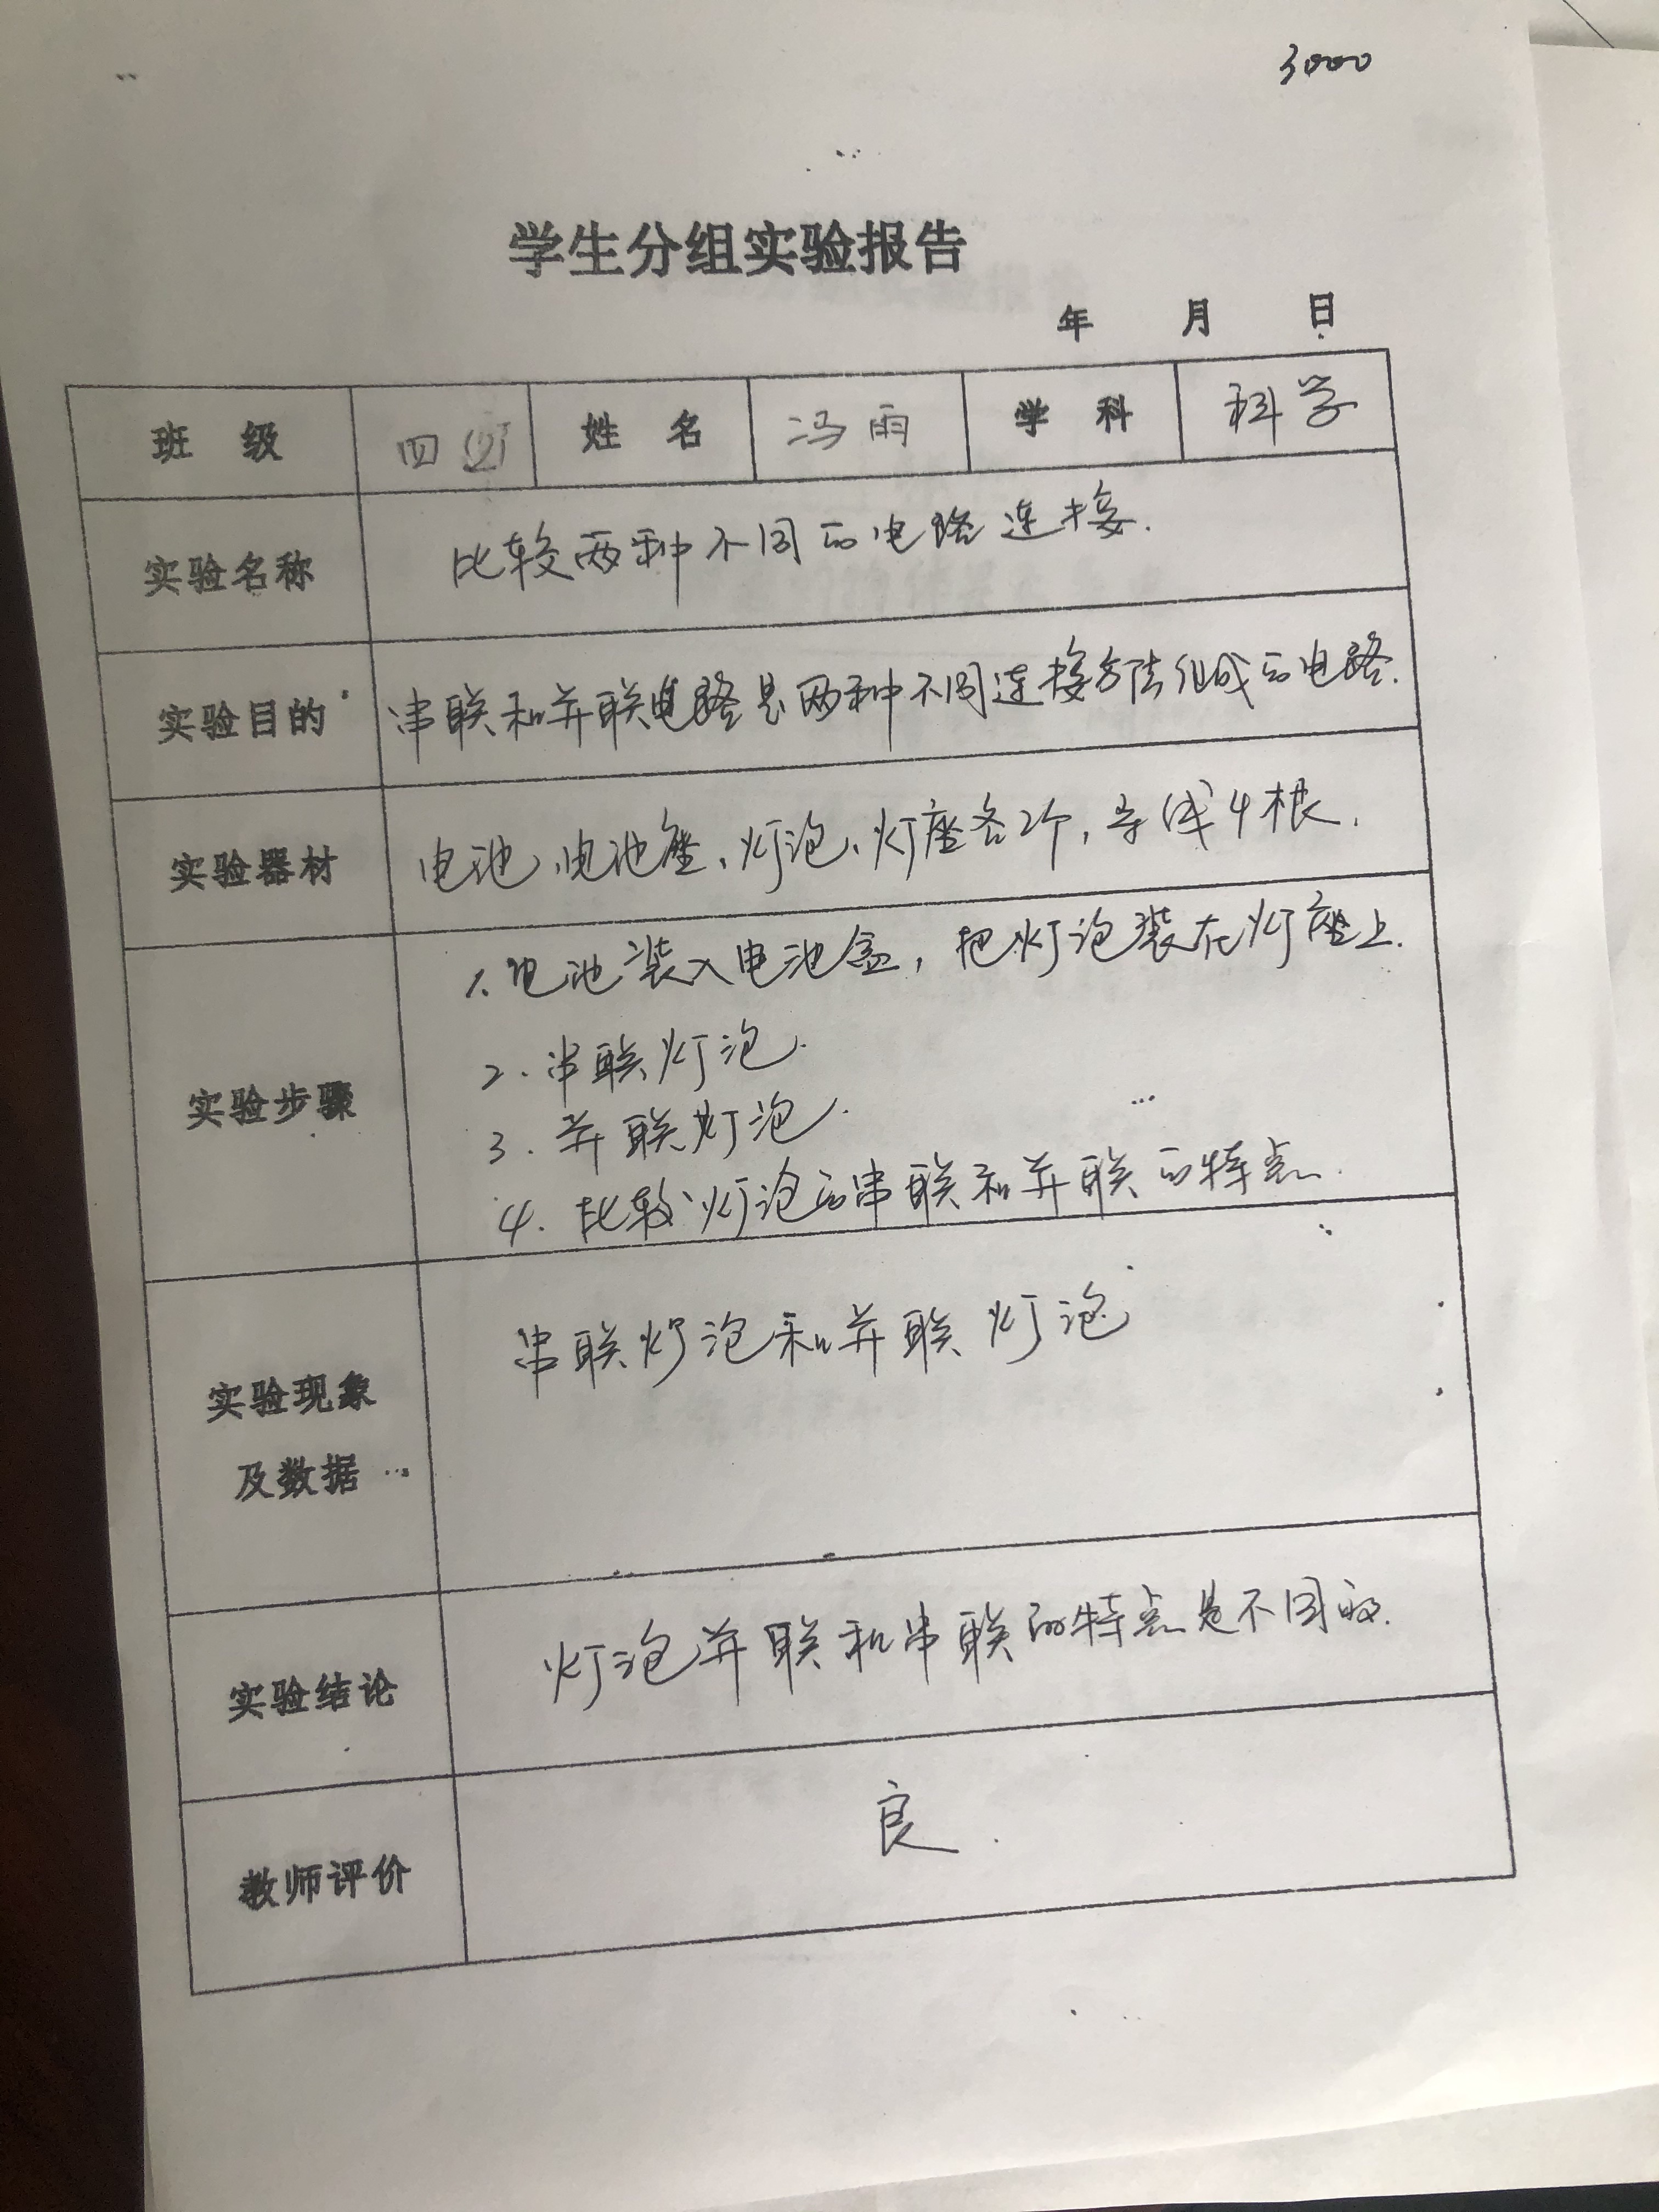 3000
学生分组实验报告
年 月 日
班 级 四(2) 姓 名 冯雨 学 科 科学
实验名称 比较两种不同的电路连接.
实验目的 串联和并联电路是两种不同连接方法组成的电路.
实验器材 电池、电池座、灯泡、灯座各2个,导线4根.
1.电池装入电池盒,把灯泡装在灯座上.
2.串联灯泡.
实验步骤
3.并联灯泡.
4.比较灯泡的串联和并联的特点.
串联灯泡和并联灯泡
实验现象
及数据
实验结论 灯泡并联和串联的特点是不同的.
教师评价 良.